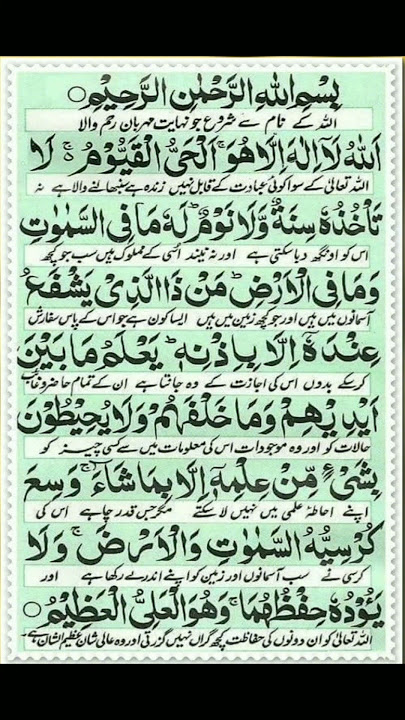 بِسْمِ اللهِ الرَّحْمٰنِ الرَّحِيْمِ ○
اللہ کے نام سے شروع جو نہایت مہربان رحم والا
اَللهُ لَآ اِلٰهَ اِلَّا هُوَ ۚ اَلْحَىُّ الْقَيُّوْمُ ۚ لَا
اللہ تعالیٰ کے سوا کوئی عبادت کے قابل نہیں زندہ ہے سنبھالنے والا ہے نہ
تَأْخُذُهٗ سِنَةٌ وَّلَا نَوْمٌ ؕ لَهٗ مَا فِى السَّمٰوٰتِ
اس کو اونگھ دبا سکتی ہے اور نہ نیند اسی کے مملوک ہیں سب جو کچھ
وَمَا فِى الْاَرْضِ ؕ مَنْ ذَا الَّذِىْ يَشْفَعُ
آسمانوں میں ہیں اور جو کچھ زمین میں ہیں ایسا کون ہے جو اس کے پاس سفارش
عِنْدَهٗٓ اِلَّا بِاِذْنِهٖ ؕ يَعْلَمُ مَا بَيْنَ
کر سکے بدوں اس کی اجازت کے وہ جانتا ہے ان کے تمام حاضر و غائب
اَيْدِيْهِمْ وَمَا خَلْفَهُمْ وَلَا يُحِيْطُوْنَ
حالات کو اور وہ موجودات اس کی معلومات میں سے کسی چیز کو
بِشَىْءٍ مِّنْ عِلْمِهٖٓ اِلَّا بِمَا شَآءَ ۚ وَسِعَ
اپنے احاطۂ علمی میں نہیں لا سکتے مگر جس قدر چاہے اس کی
كُرْسِيُّهُ السَّمٰوٰتِ وَالْاَرْضَ ۚ وَلَا
کرسی نے سب آسمانوں اور زمین کو اپنے اندر لے رکھا ہے اور
يَئُوْدُهٗ حِفْظُهُمَا ۚ وَهُوَ الْعَلِىُّ الْعَظِيْمُ ○
اللہ تعالیٰ کو ان دونوں کی حفاظت کچھ گراں نہیں گزرتی اور وہ عالی شان عظیم الشان ہے۔